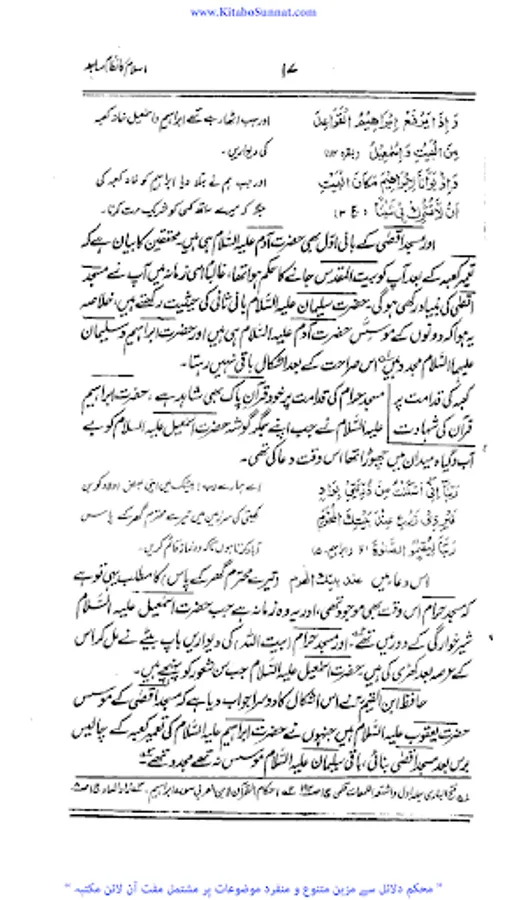 www.KitaboSunnat.com
اسلام کا نظام مساجد
۱۷
وَاِذْ يَرْفَعُ اِبْرَاهِيْمُ الْقَوَاعِدَ اور جب اٹھا رہے تھے ابراہیم و اسمٰعیل خانہ کعبہ
مِنَ الْبَيْتِ وَاِسْمٰعِيْلُ (بقرہ) کی دیواریں۔
وَاِذْ بَوَّأْنَا لِاِبْرَاهِيْمَ مَكَانَ الْبَيْتِ اور جب ہم نے بتلا دیا ابراہیم کو خانہ کعبہ کی
اَنْ لَّا تُشْرِكْ بِيْ شَيْئًا جگہ کہ میرے ساتھ کسی کو شریک مت کرنا۔
اور مسجد اقصیٰ کے بانی اوّل بھی حضرت آدم علیہ السلام ہی ہیں، محققین کا بیان ہے کہ
تعمیر کعبہ کے بعد آپ کو بیت المقدس جانے کا حکم ہوا تھا، غالباً اسی زمانہ میں آپ نے مسجد
اقصیٰ کی بنیاد رکھی ہوگی، حضرت سلیمان علیہ السلام بانی ثانی کی حیثیت رکھتے ہیں، خلاصہ
یہ ہوا کہ دونوں کے مؤسس حضرت آدم علیہ السلام ہی ہیں اور حضرت ابراہیم و سلیمان
علیہما السلام مجدد ہیں اس صراحت کے بعد اشکال باقی نہیں رہتا۔
کعبہ کی قدامت پر مسجد حرام کی قدامت پر خود قرآن پاک بھی شاہد ہے، حضرت ابراہیم
قرآن کی شہادت علیہ السلام نے جب اپنے جگر گوشہ حضرت اسمٰعیل علیہ السلام کو بے
آب و گیاہ میدان میں چھوڑا تھا اس وقت دعا کی تھی۔
رَبَّنَا اِنِّيْ اَسْكَنْتُ مِنْ ذُرِّيَّتِيْ بِوَادٍ اے ہمارے رب! بیشک میں اپنی بعض اولاد کو بن
غَيْرِ ذِيْ زَرْعٍ عِنْدَ بَيْتِكَ الْمُحَرَّمِ کھیتی کی سرزمین میں تیرے محترم گھر کے پاس
رَبَّنَا لِيُقِيْمُوا الصَّلٰوةَ (ابراہیم) آباد کرتا ہوں تاکہ وہ نماز قائم کریں۔
اس دعا میں عند بیتک المحرم (تیرے محترم گھر کے پاس) کا مطلب یہی تو ہے
کہ مسجد حرام اس وقت بھی موجود تھی، اور یہ وہ زمانہ ہے جب حضرت اسمٰعیل علیہ السلام
شیر خوارگی کے دور میں تھے، اور مسجد حرام (بیت اللہ) کی دیواریں باپ بیٹے نے مل کر اس
کے عرصہ بعد کھڑی کی ہیں، حضرت اسمٰعیل علیہ السلام جب سن شعور کو پہنچے ہیں۔
حافظ ابن القیم نے اس اشکال کا دوسرا جواب دیا ہے کہ مسجد اقصیٰ کے مؤسس
حضرت یعقوب علیہ السلام ہیں جنہوں نے حضرت ابراہیم علیہ السلام کی تعمیر کعبہ کے چالیس
برس بعد مسجد اقصیٰ بنائی، باقی سلیمان علیہ السلام مؤسس نہ تھے مجدد تھے
فتح الباری احکام القرآن لابن العربی سورہ ابراہیم زاد المعاد
" محکم دلائل سے مزین متنوع و منفرد موضوعات پر مشتمل مفت آن لائن مکتبہ "